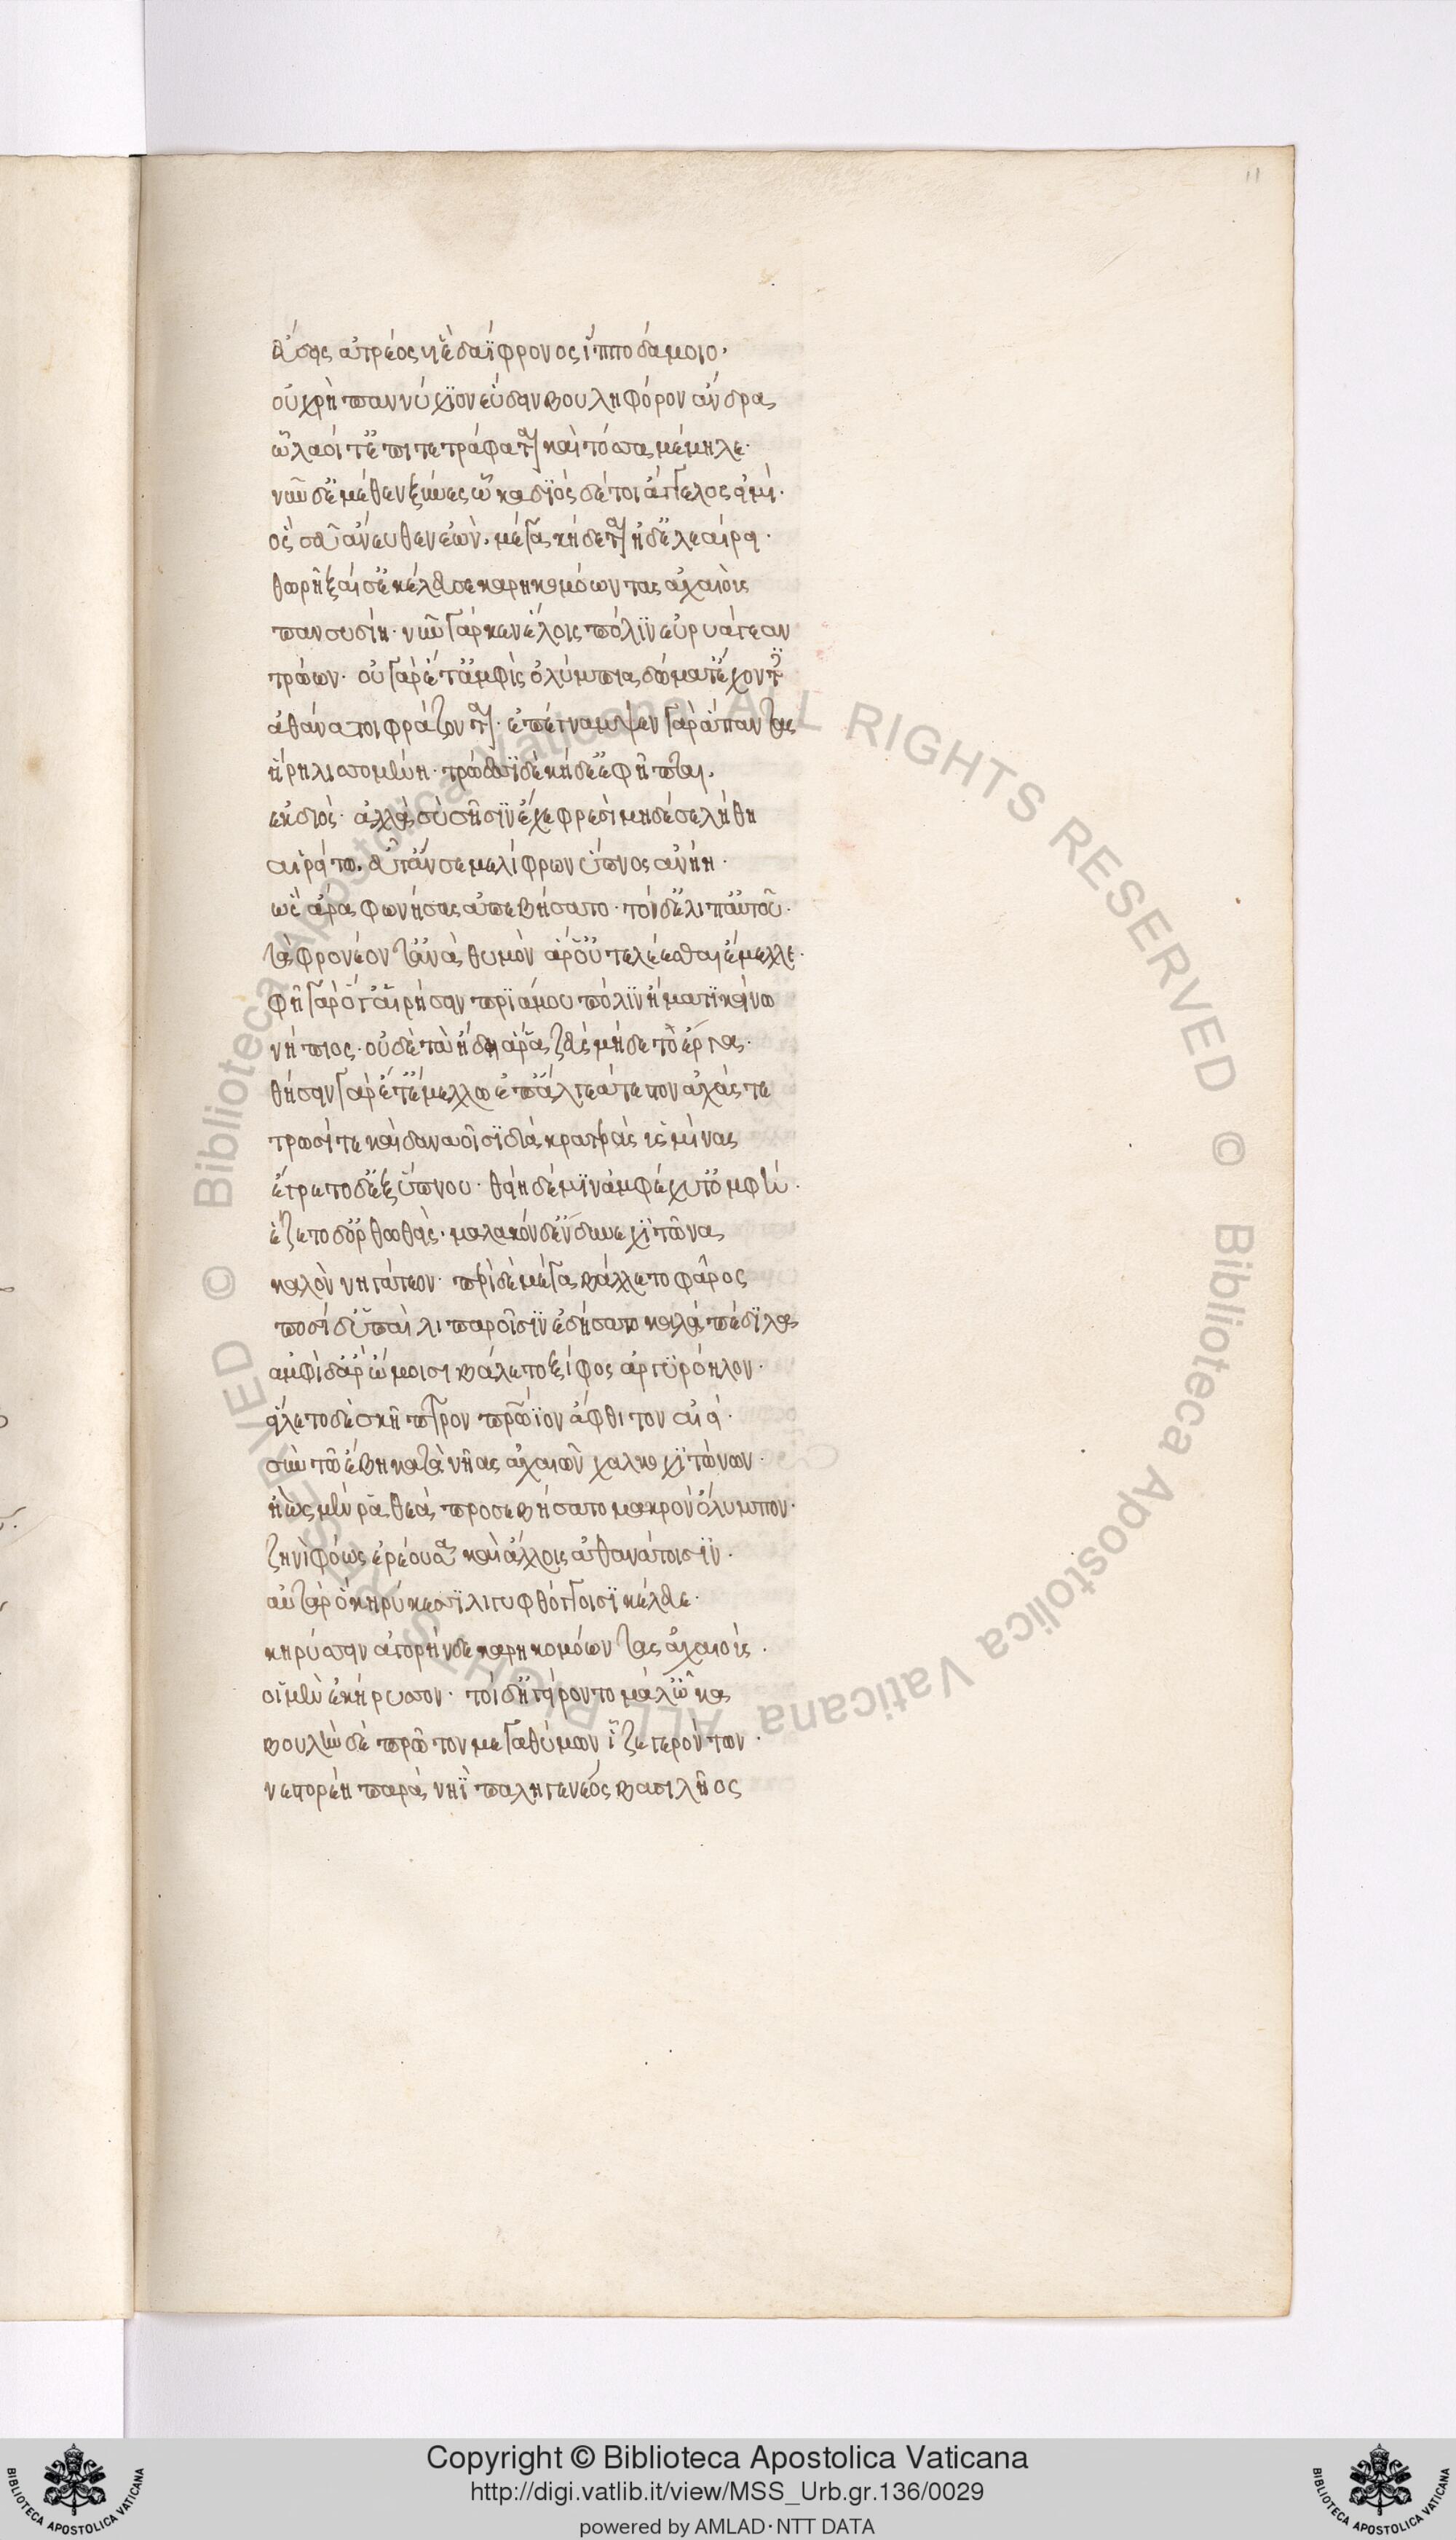 11
εὕδεις ἀτρέος υἱὲ δαΐφρονος ἱπποδάμοιο·
οὐ χρὴ παννύχϊον εὕδειν βουληφόρον ἄνδρα
ὧ λαοί τ' ἐπιτετράφαται καὶ τόσσα μέμηλε·
νῦν δ' ἐμέθεν ξύνες ὦκα διὸς δέ τοι ἄγγελος εἰμί·
ὃς σεῦ ἄνευθεν ἐὼν. μέγα κήδεται ἠδ' ἐλεαίρει·
θωρῆξαί σ' ἐκέλευσε καρηκομόωντας ἀχαιοὺς
πανσυδίη· νῦν γάρ κεν ἕλοις πόλϊν εὐρυάγυιαν
τρώων· οὐ γὰρ ἔτ' ἀμφὶς ὀλύμπια δώματ' ἔχοντες
ἀθάνατοι φράζονται· ἐπέγναμψεν γὰρ ἅπαντας
ἥρη λισσομένη· τρώεσσϊ δὲ κήδε' ἐφῆπται.
ἐκ διὸς· ἀλλὰ σὺ σῆσϊν ἔχε φρεσὶ μηδέ σε λήθη
αἱρείτω. εὖτ' ἄν σε μελίφρων ὕπνος ἀνήη·
ὣς ἄρα φωνήσας ἀπεβήσατο· τὸν δ' ἔλιπ' αὐτοῦ·
τὰ φρονέοντ' ἀνὰ θυμὸν ἅρ' οὐ τελέεσθαι ἔμελλε·
φῆ γὰρ ὅγ' αἱρήσειν πρϊάμου πόλϊν ἤματϊ κείνω
νήπιος· οὐδὲ τὰ ἤδη ἅρα ζεὺς μήδετο ἔργα·
θήσειν γὰρ ἔτ' ἔμελλεν ἐπ' ἄλγεά τε στοναχάς τε
τρωσί τε καὶ δαναοῖσϊ διὰ κρατερὰς ὑσμίνας
ἔγρετο δ' ἐξ ὕπνου· θείη δέ μϊν ἀμφέχυτ' ὀμφή·
ἕζετο δ' ὀρθωθεὶς· μαλακὸν δ' ἔνδυνε χϊτῶνα
καλὸν νηγάτεον· περὶ δὲ μέγα βάλλετο φᾶρος
ποσὶ δ' ὑπαὶ λιπαροῖσϊν ἐδήσατο καλὰ πέδϊλα
ἀμφὶ δ' ἄρ' ὤμοισι βάλετο ξίφος ἀργϋρόηλον·
εἵλετο δὲ σκῆπτρον πατρώϊον ἄφθιτον αἰεί·
σὺν τῶ ἔβη κατὰ νῆας ἀχαιῶν χαλκοχϊτώνων·
ἠὼς μέν ῥα θεὰ προσεβήσατο μακρὸν ὄλυμπον·
ζηνὶ φόως ἐρέουσα καὶ ἄλλοις ἀθανάτοισϊν·
αὐτὰρ ὃ κηρύκεσσϊ λιγυφθόγγοισϊ κέλευε·
κηρύσσειν ἀγορήνδε καρηκομόωντας ἀχαιοὺς·
οἱ μὲν ἐκήρυσσον· τοὶ δ' ἠγείροντο μάλ' ὦκα
βουλὴν δὲ πρῶτον μεγαθύμων ἷζε γερόντων·
νεστορέη παρὰ νηῒ πυληγενέος βασιλῆος
Copyright © Biblioteca Apostolica Vaticana
http://digi.vatlib.it/view/MSS_Urb.gr.136/0029
powered by AMLAD·NTT DATA